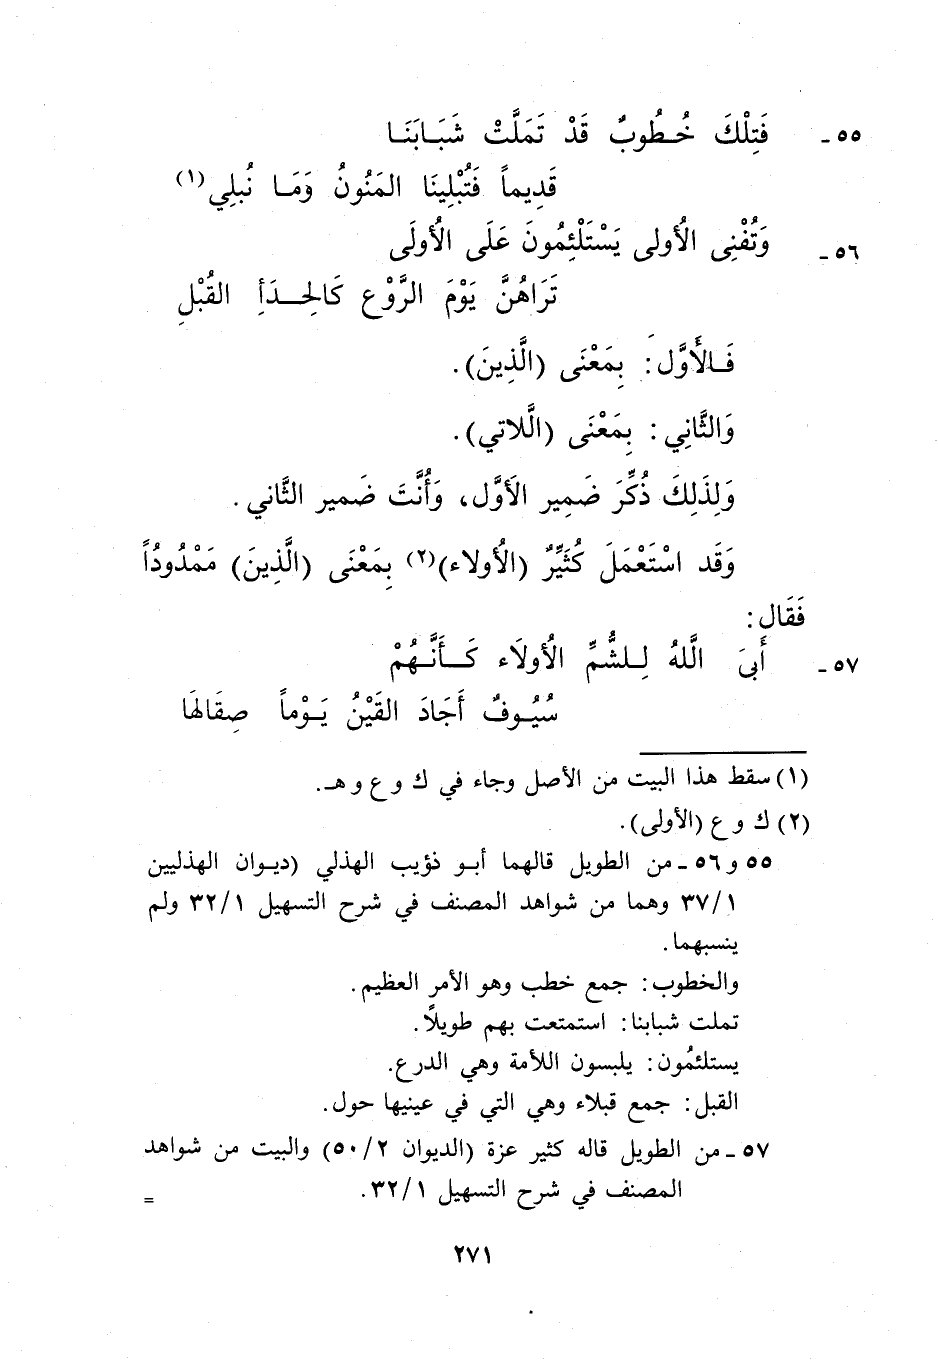 ٥٥ ـ فَتِلْكَ خُـطُوبٌ قَدْ تَمَلَّتْ شَبَـابَنَـا
قَدِيماً فَتُبْلِينَا المَنُونُ وَمَـا نُبلِي(١)
٥٦ ـ وَتُفْنِى الْأُولى يَسْتَلْئِمُونَ عَلَى الْأُولَى
تَرَاهُنَّ يَوْمَ الرَّوْعِ كَالحِـدَأِ القُبْلِ
فَـالْأَوَّل: بِمَعْنَى (الَّذِينَ).
وَالثَّانِي: بِمَعْنَى (الَّلاتي).
وَلِذَلِكَ ذُكِّرَ ضَمِير الَأوَّل، وَأُنَّثَ ضَمير الثَّاني.
وَقَد اسْتَعْمَلَ كُثَيِّرٌ (الْأُولاء)(٢) بِمَعْنَى (الَّذِينَ) مَمْدُودُاً
فَقَال:
٥٧ ـ أَبىَ الَّلهُ لِـلشُّمِّ الْأُولَاء كَـأَنَّـهُمْ
سُيُـوفٌ أَجَادَ القَيْنُ يَـوْماً صِقَالهَا
(١) سقط هذا البيت من الأصل وجاء في ك و ع و هـ.
(٢) ك و ع (الأولى).
٥٥ و ٥٦ ـ من الطويل قالهما أبـو ذؤيب الهذلي (ديـوان الهذليين
٣٧/١ وهما من شواهد المصنف في شرح التسهيل ٣٢/١ ولم
ينسبهما.
والخطوب: جمع خطب وهو الأمر العظيم.
تملت شبابنا: استمتعت بهم طويلًا.
يستلئمُون: يلبسون اللأمة وهي الدرع.
القبل: جمع قبلاء وهي التي في عينيها حول.
٥٧ ـ من الطويل قاله كثير عزة (الديوان ٥٠/٢) والبيت من شواهد
المصنف في شرح التسهيل ٣٢/١.
=
٢٧١